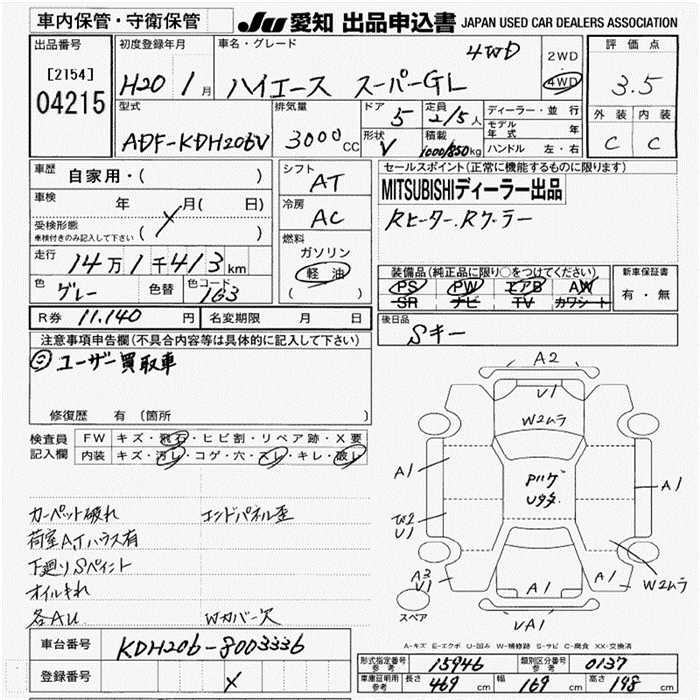 車内保管・守衛保管
JU 愛知 出品申込書 JAPAN USED CAR DEALERS ASSOCIATION
出品番号
[2154]
04215
初度登録年月
H20 1月
車名・グレード
ハイエース スーパーGL 4WD
2WD
4WD
評価点
3.5
外装 内装
C C
型式
ADF-KDH206V
排気量
3000cc
ドア
5
定員
2/5人
形状
V
積載
1000/850kg
ディーラー・並行
モデル年式 年
ハンドル 左・右
車歴
自家用・( )
車検
年 月( 日)
受検形態
車検付きのみ記入して下さい
( )
走行
14万1千413km
色
グレー
色替
色コード
1G3
シフト
AT
冷房
AC
燃料
ガソリン
軽油
( )
セールスポイント(正常に機能するものに限ります)
MITSUBISHIディーラー出品
Rヒーター.Rクーラー
装備品(純正品に限り○をつけてください)
PS PW エアB AW
SR ナビ TV カワシート
新車保証書
有・無
R券 11.140円
名変期限 月 日
後日品
Sキー
注意事項申告欄(不具合内容等は具体的に記入して下さい)
ユーザー買取車
修復歴 有 (箇所 )
検査員記入欄
FW キズ・飛石・ヒビ割・リペア跡・X要
内装 キズ・汚レ・コゲ・穴・スレ・キレ・破レ
カーペット破れ エンドパネル歪
荷室AJハラス有
下廻りSペイント
オイルキれ
各AU Wカバー欠
A2
V1
W2ムラ
A1
A1
W2
U1
PハゲU多
A2
V1
A1
A1
W2ムラ
VA1
スペア
A-キズ E-エクボ U-凹み W-補修跡 S-サビ C-腐食 XX-交換済
車台番号
KDH206-8003336
登録番号
形式指定番号 参考 15946
類別区分番号 参考 0137
車庫証明用 参考 長さ 469cm 幅 169cm 高さ 198cm